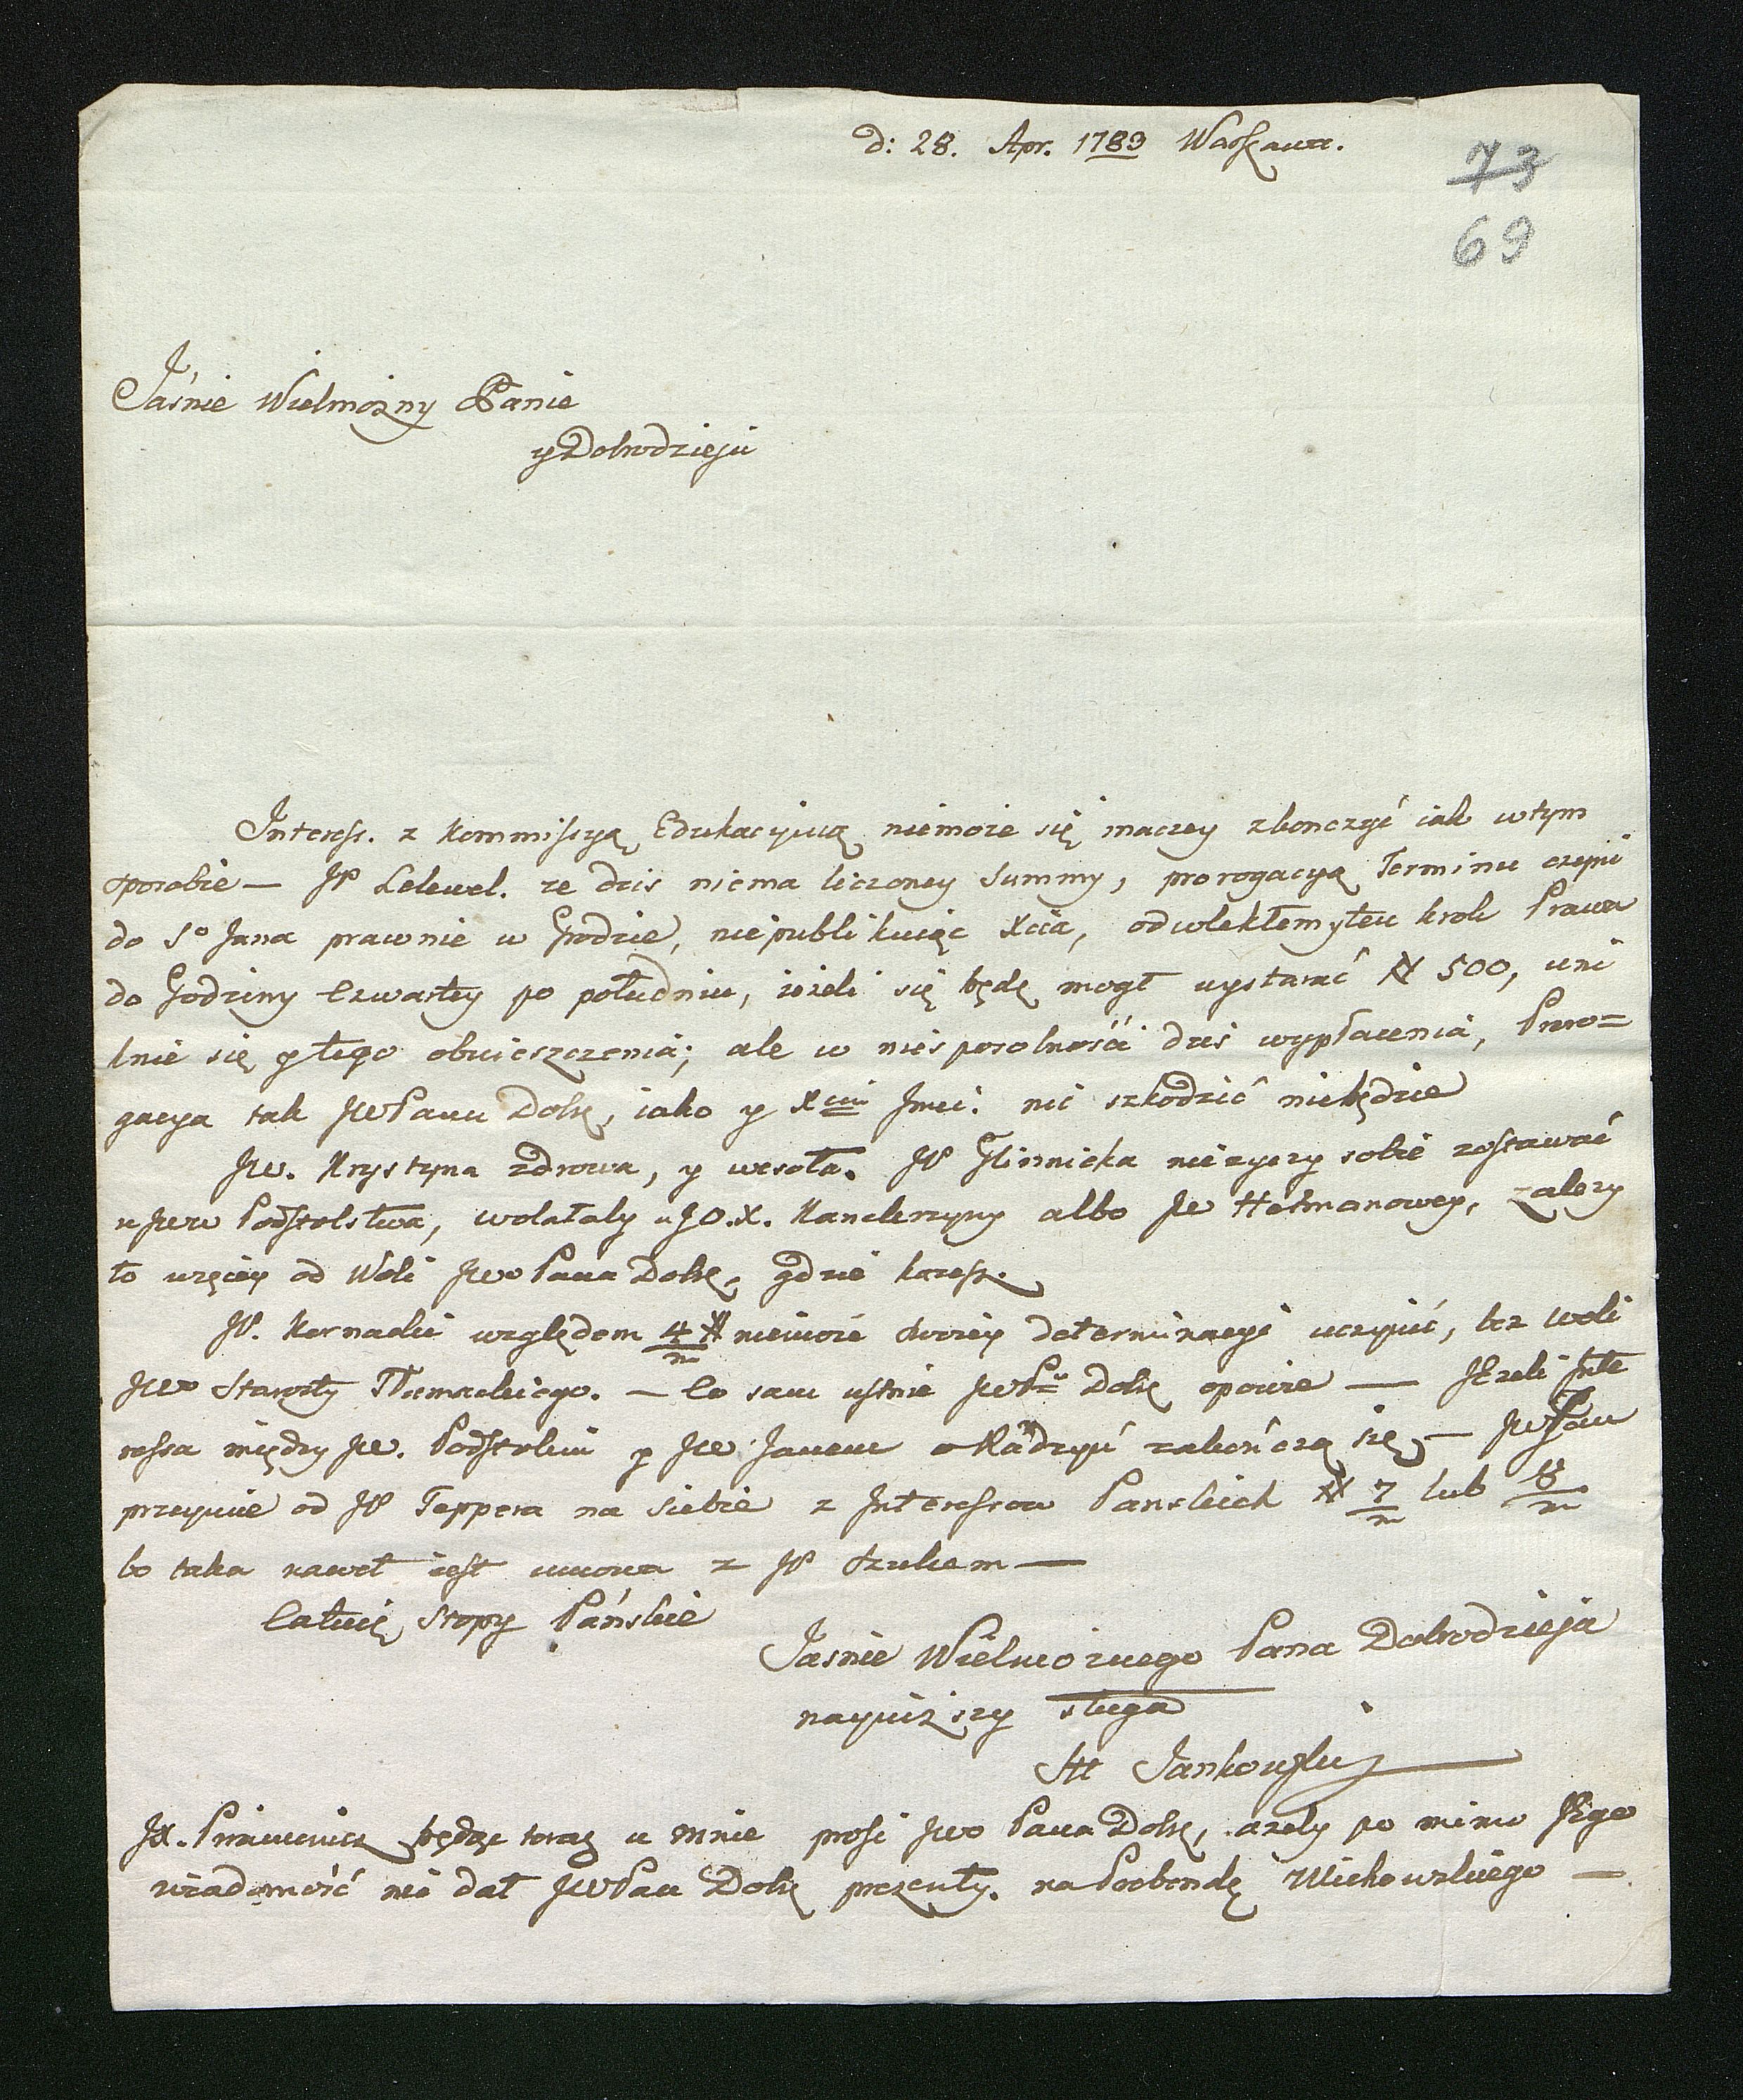 d: 28. Apr. 1789 Warszawa.
73
69
Jaśnie Wielmożny Panie
y Dobrodzieju
Interess. z Kommissyą Edukacyiną niemoże się inaczey zkonczyć iak w tym
sposobie — JP Lelewel. ze dzis niema liczoney Summy, prorogacyą Terminu czyni
do So Jana prawnie w Grodzie, niepubli kuiąc Xcia, odwlekłem y ten krok Prawa
do Godziny Czwartey po południu, ieżeli się będę mogł wystarać # 500, uni
knie się y tego obwieszczenia; ale w niesposolności dziś wypłacenia, Proro=
gacya tak JWPanu Dobr, iako y Xciu Jmci. nic szkodzić niebędzie
JW. Krystyna zdrowa, y wesoła. JP Glinnicka nieżyczy sobie zostawać
u JWW Podstolstwa, wolałaby u J.O.X. Kanclerzyny albo JW Hetmanowey, zalezy
to więcey od Woli JWo Pana Dobr, gdzie każesz.
JP. Karnacki względem 4/m # niemoże swoiey determinacyi uczynić, bez woli
JWo Starosty Tłumackiego. — Co sam ustnie JWPu Dobr opowie — JEzeli Inte
ressa między JW. Podstolim y JW Janem o Kądzyń zakończą się, — JWPan
przeymie od JP Teppera na siebie z Interessow Panskich # 7/m lub 8/m
bo taka nawet iest umowa z JP Szulcem —
Całuię Stopy Pańskie
Jasnie Wielmożnego Pana Dobrodzieja
nayniższy sługa
Jankowski
JX. będąc teraz u mnie prosi JWo Pana Dobr, azeby po mimo JEgo
wiadomość nie dał JWPan Dobr prezenty. na Prebendę Michowskiego —